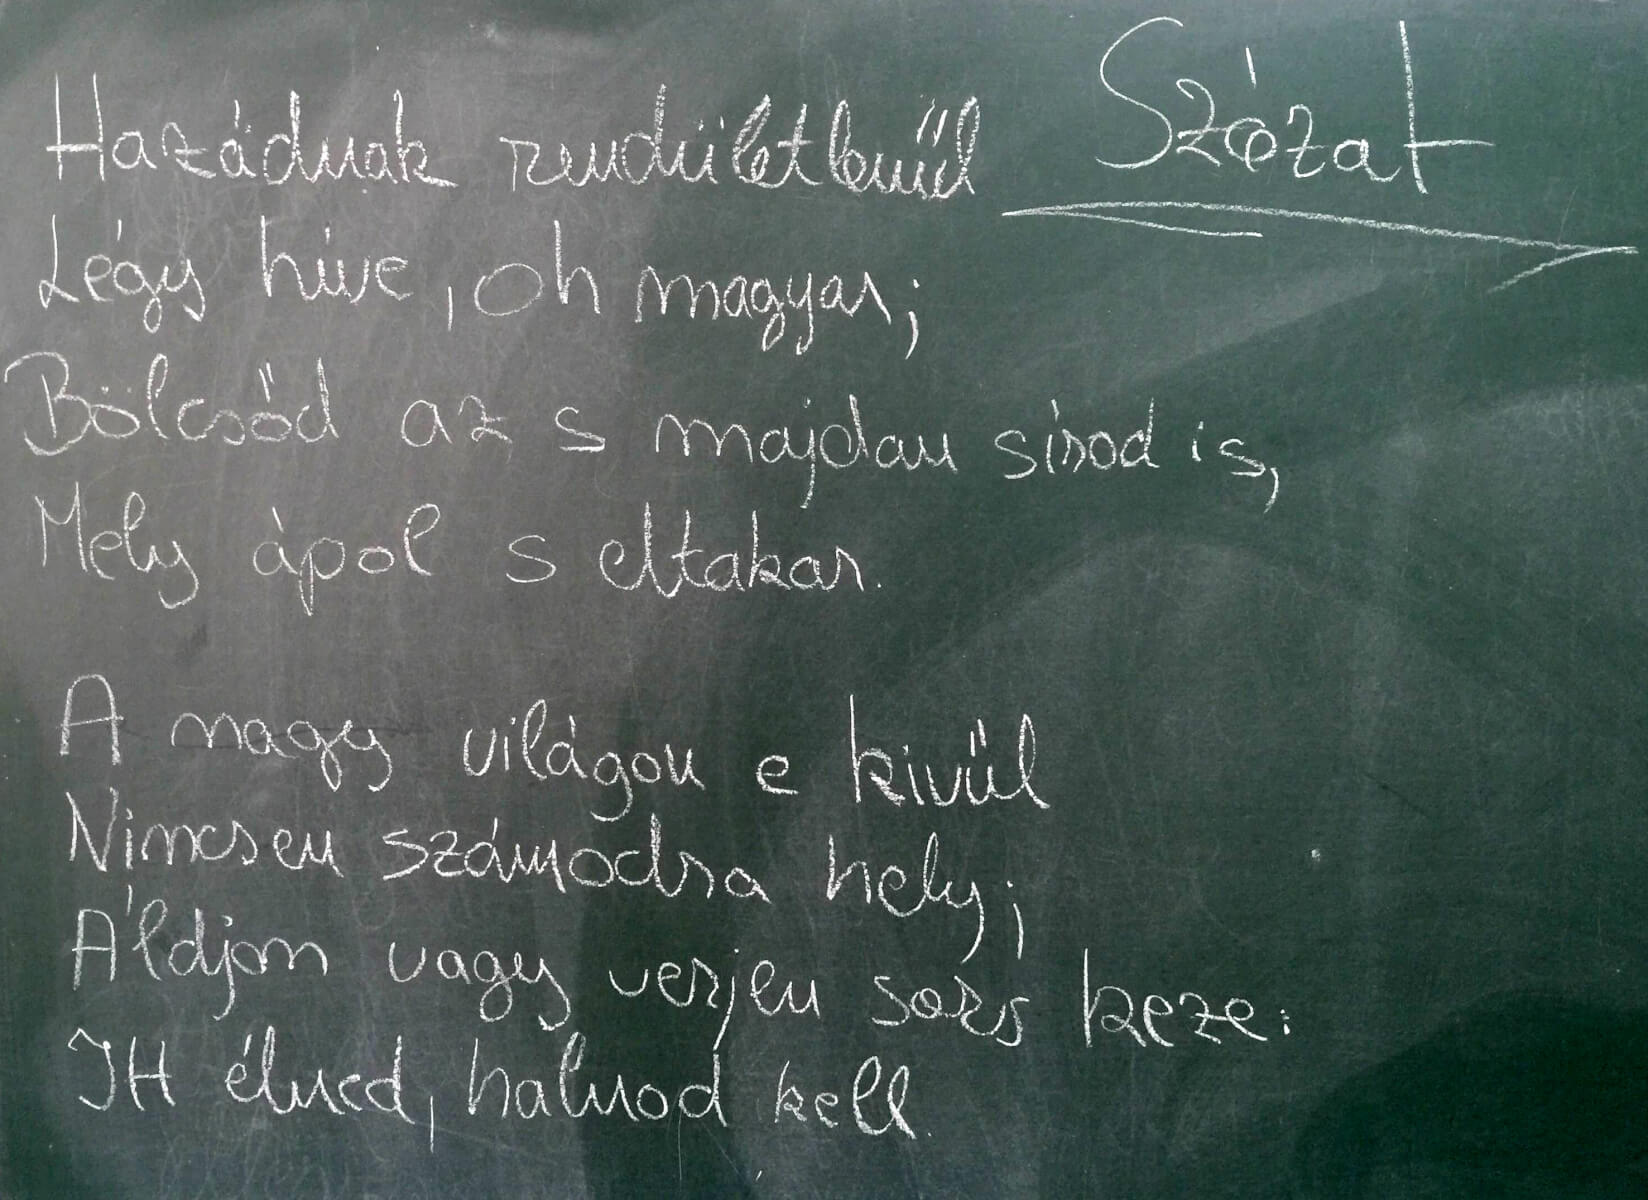 Szózat
Hazádnak rendületlenűl
Légy híve, oh magyar;
Bölcsőd az s majdan sírod is,
Mely ápol s eltakar.
A nagy világon e kivűl
Nincsen számodra hely;
Áldjon vagy verjen sors keze:
Itt élned, halnod kell.